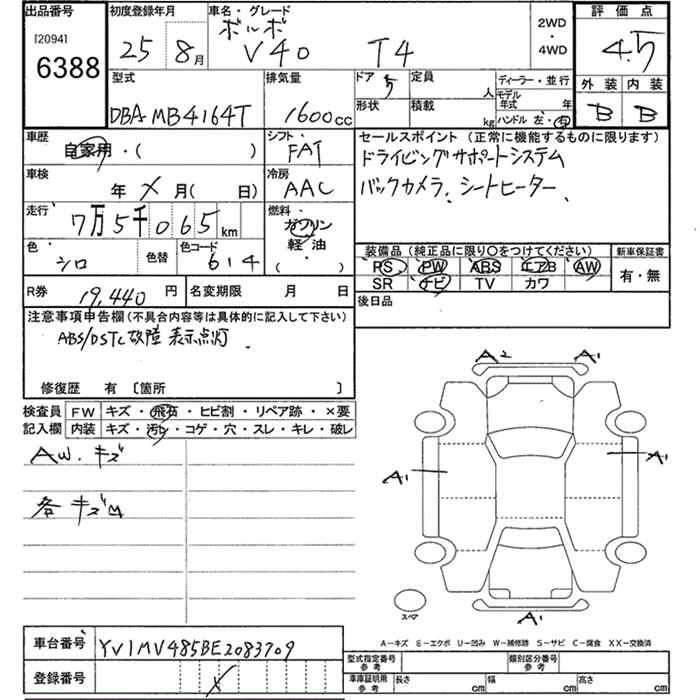 出品番号
[2094]
6388
初度登録年月
25 8月
車名・グレード
ボルボ
V40 T4
2WD
・
4WD
評価点
4.5
外装 内装
B B
型式
DBA MB4164T
排気量
1600cc
ドア 5
形状
定員 人
積載 kg
ディーラー・並行
モデル年式 年
ハンドル 左・右
車歴
自家用・( )
シフト
FAT
車検
年 X 月( 日)
冷房
AAC
走行
7万5千065km
燃料
ガソリン
軽油
( )
色
シロ
色替
色コード
614
R券
19,440 円
名変期限 月 日
セールスポイント(正常に機能するものに限ります)
ドライビングサポートシステム
バックカメラ、シートヒーター、
装備品(純正品に限り〇をつけてください)
PS PW ABS エアB AW
SR ナビ TV カワ
新車保証書
有・無
後日品
注意事項申告欄(不具合内容等は具体的に記入して下さい)
ABS/DSTC故障表示点灯
修復歴 有 〔箇所 〕
検査員
記入欄
FW キズ・飛石・ヒビ割・リペア跡・×要
内装 キズ・汚レ・コゲ・穴・スレ・キレ・破レ
AW.キズ
各キズ凹
A2 A1
A1 A1
スペア
A1
A−キズ E−エクボ U−凹み W−補修跡 S−サビ C−腐食 XX−交換済
車台番号
YV1MV485BE2083709
登録番号
X
型式指定番号
参考
類別区分番号
参考
車庫証明用
参考
長さ cm
幅 cm
高さ cm